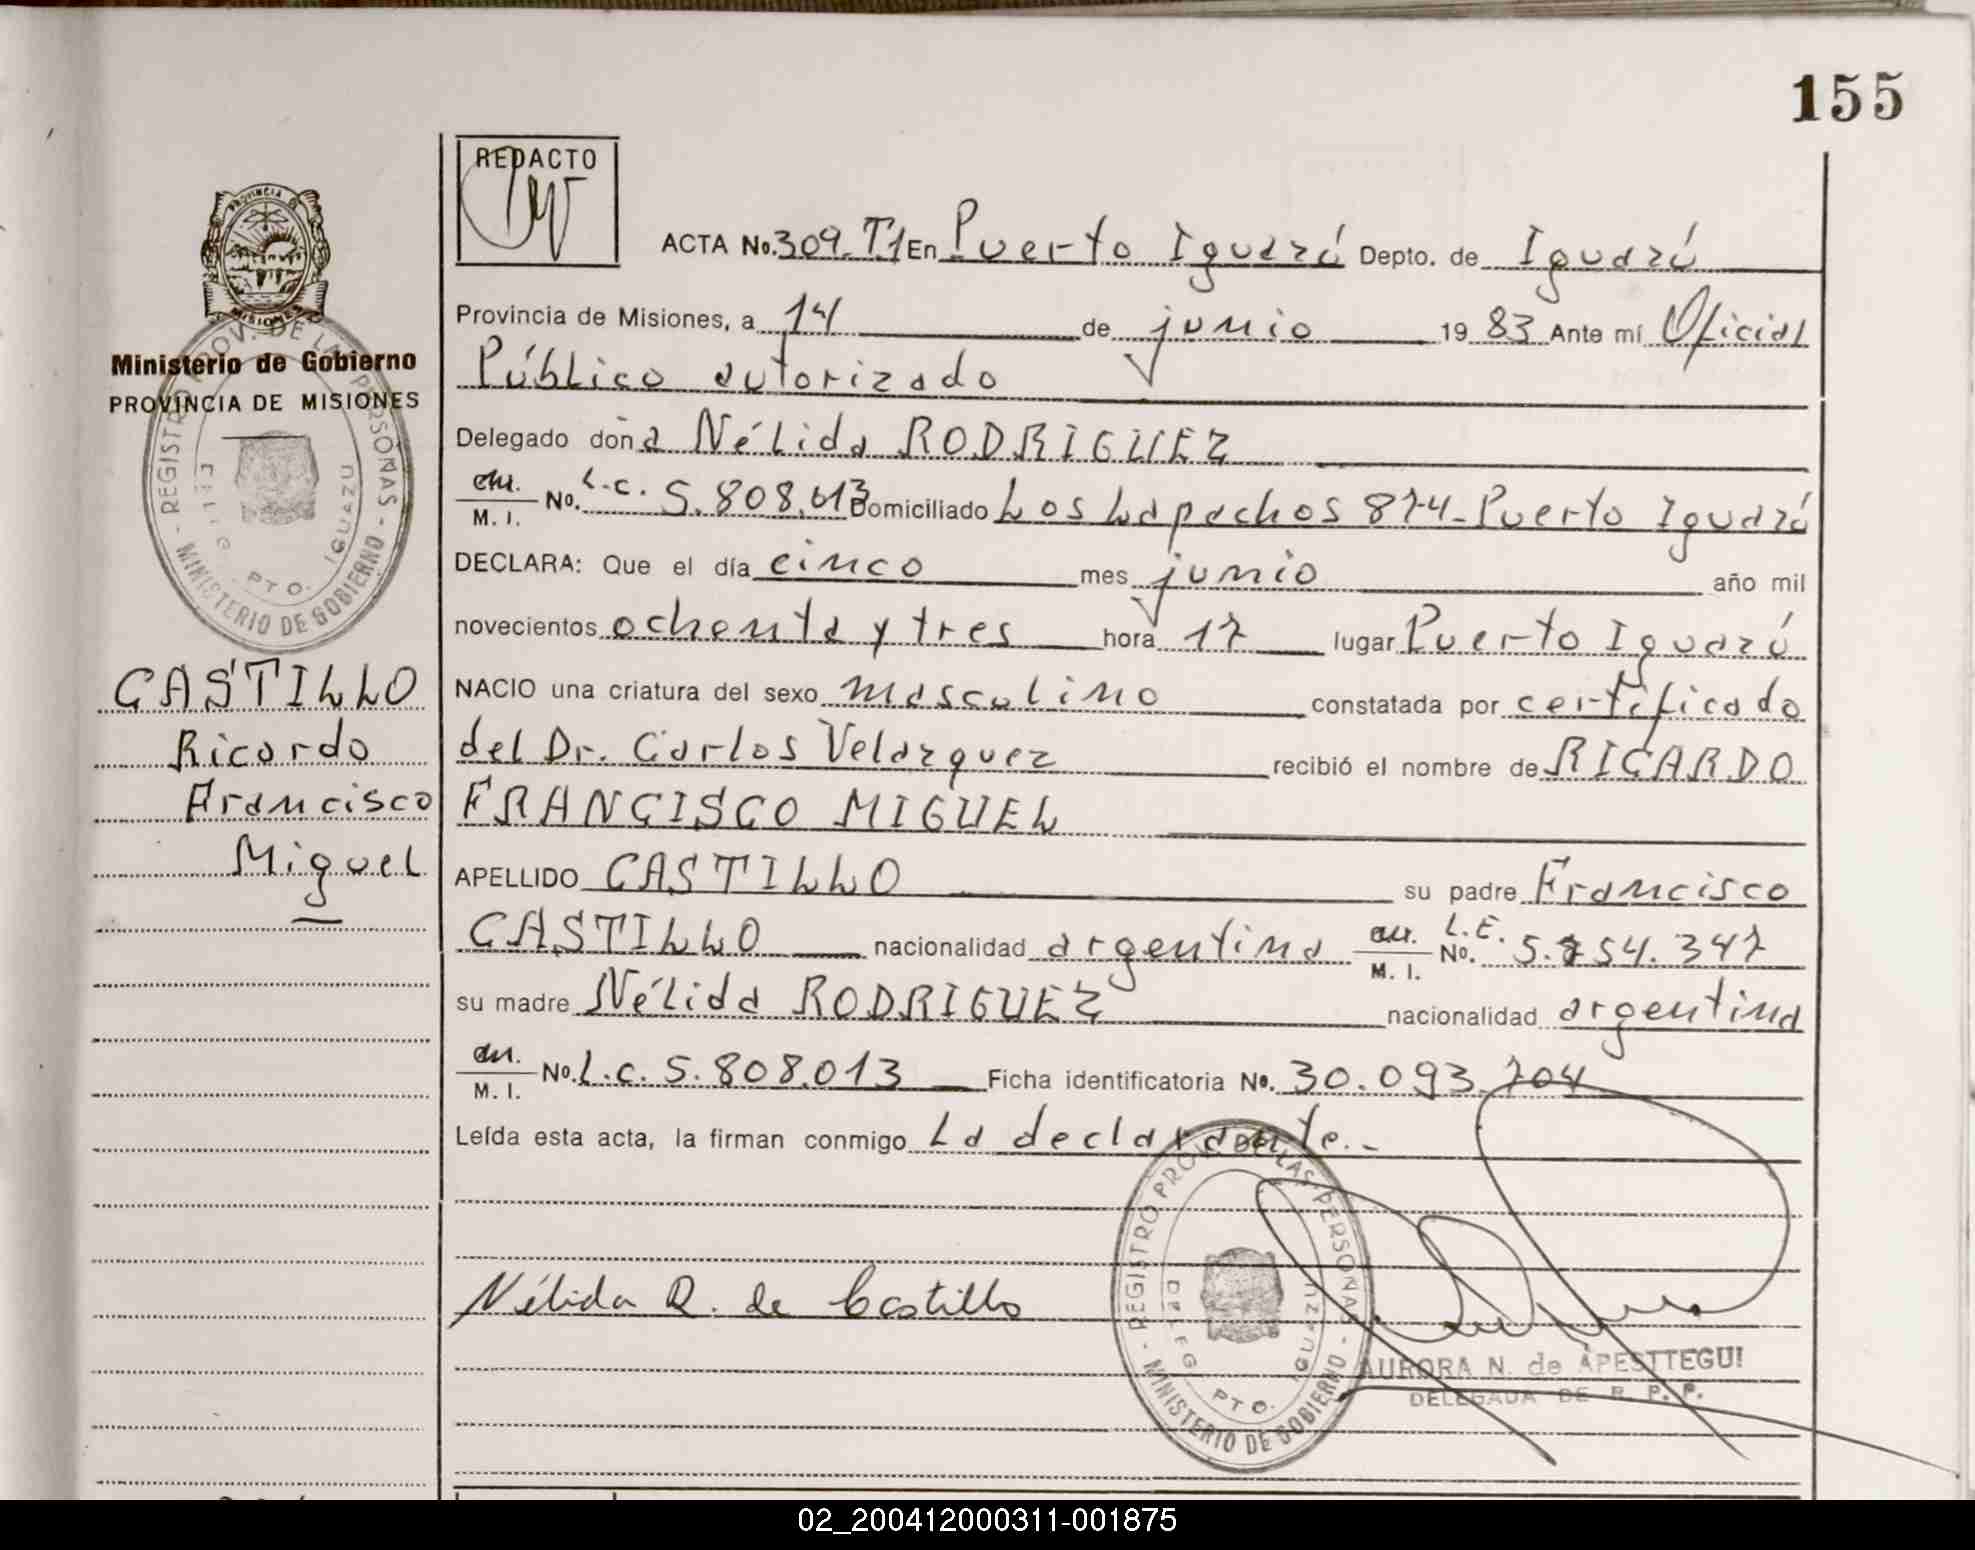 155
REDACTO
ACTA No. 309. T1 En Puerto Iguazú Depto. de Iguazú
Provincia de Misiones, a 14 de junio 1983 Ante mí Oficial
Público autorizado
Delegado doña Nélida RODRIGUEZ
M. I. No. L.C. 5.808.013 Domiciliado Los Lapachos 874- Puerto Iguazú
DECLARA: Que el día cinco mes junio año mil
novecientos ochenta y tres hora 17 lugar Puerto Iguazú
NACIO una criatura del sexo masculino constatada por certificado
del Dr. Carlos Velazquez recibió el nombre de RICARDO
FRANCISCO MIGUEL
APELLIDO CASTILLO su padre Francisco
CASTILLO nacionalidad argentina M. I. No. L.E. 5.754.347
su madre Nélida RODRIGUEZ nacionalidad argentina
M. I. No. L.C. 5.808.013 Ficha identificatoria No. 30.093.704
Leída esta acta, la firman conmigo La declarante.-
Nélida R. de Castillo
AURORA N. de APESTTEGUI
DELEGADA DE R. P. P.
REGISTRO PROV. DE LAS PERSONAS - MINISTERIO DE GOBIERNO -
DELEG. PTO. IGUAZU
PROVINCIA DE
MISIONES
Ministerio de Gobierno
PROVINCIA DE MISIONES
REGISTRO PROV. DE LAS PERSONAS - MINISTERIO DE GOBIERNO -
DELEG. PTO. IGUAZU
CASTILLO
Ricardo
Francisco
Miguel
02_200412000311-001875